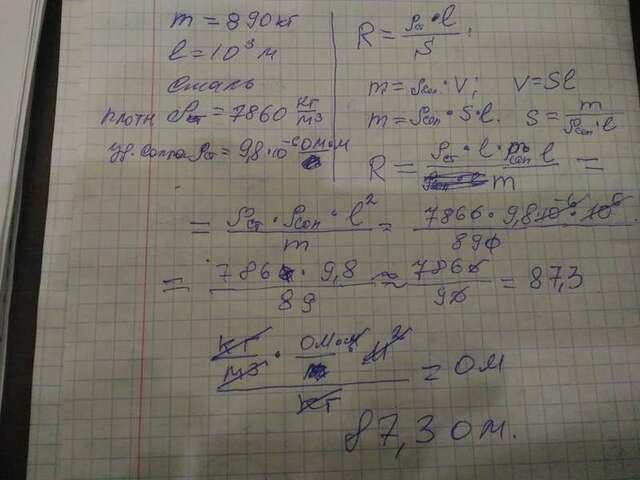 m = 890 кг
l = 10³ м
сталь
плотн ρст = 7860 кг/м³
уд. сопр ρст = 9,8·10⁻⁶ Ом·м
R = ρст·l/S;
m = ρсоп·V; V = Sl
m = ρсоп·S·l. S = m/ρсоп·l
R = ρст·l·ρсоп l/m =
= ρст·ρсоп·l²/m = 7860·9,8·10⁻⁶·10⁶/890
= 786·9,8/89 ≈ 786/9 = 87,3
кг/м³·Ом·м·м²/кг = Ом
87,3 Ом.